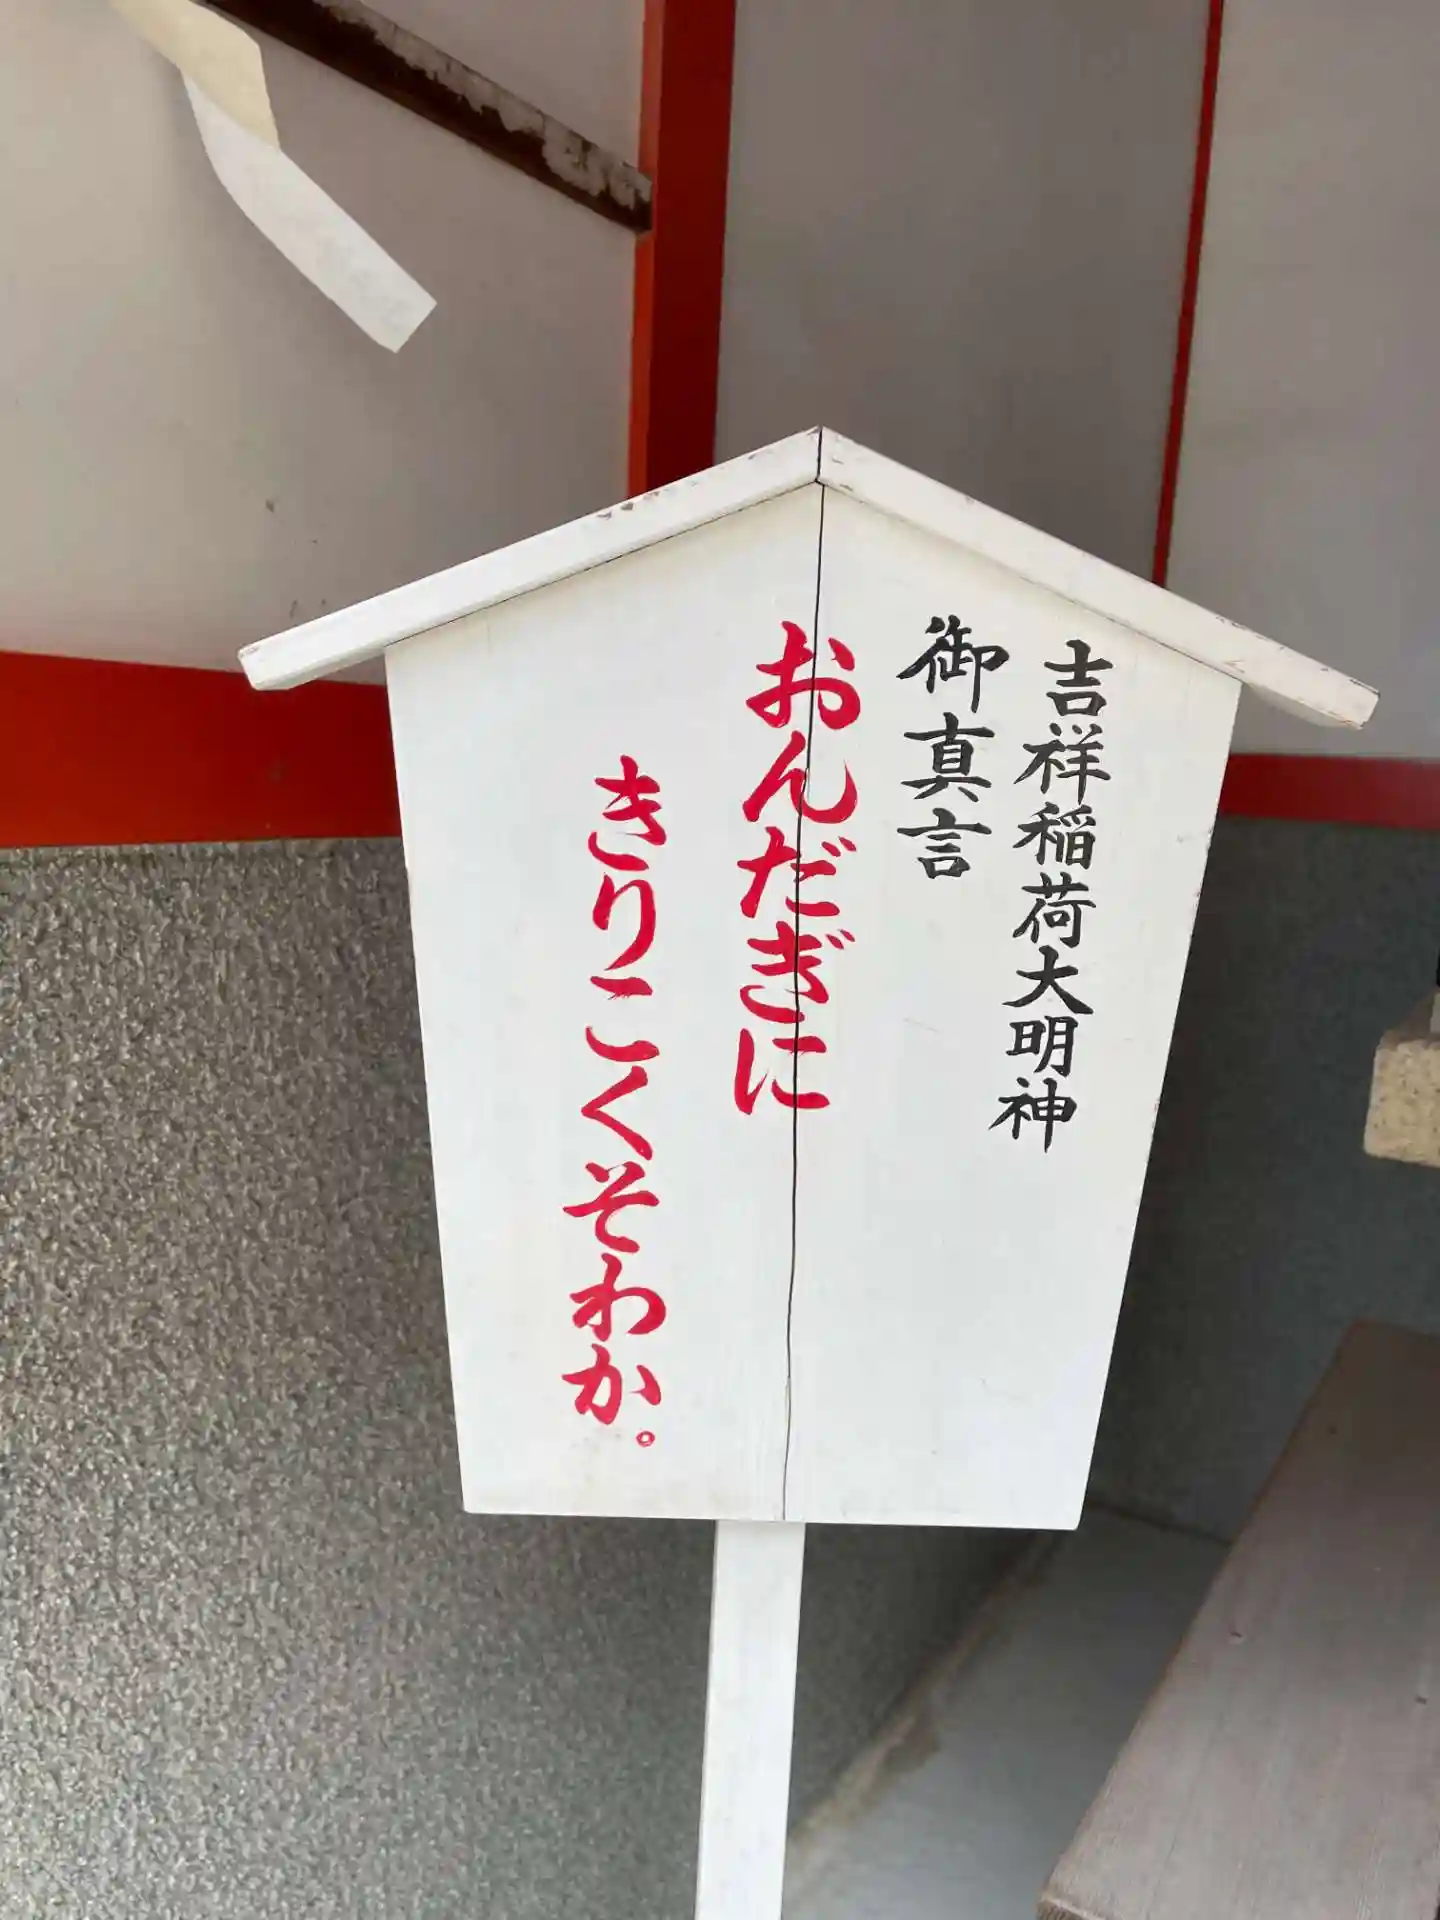 吉祥稲荷大明神
御真言
おんだぎに
きりこくそわか。